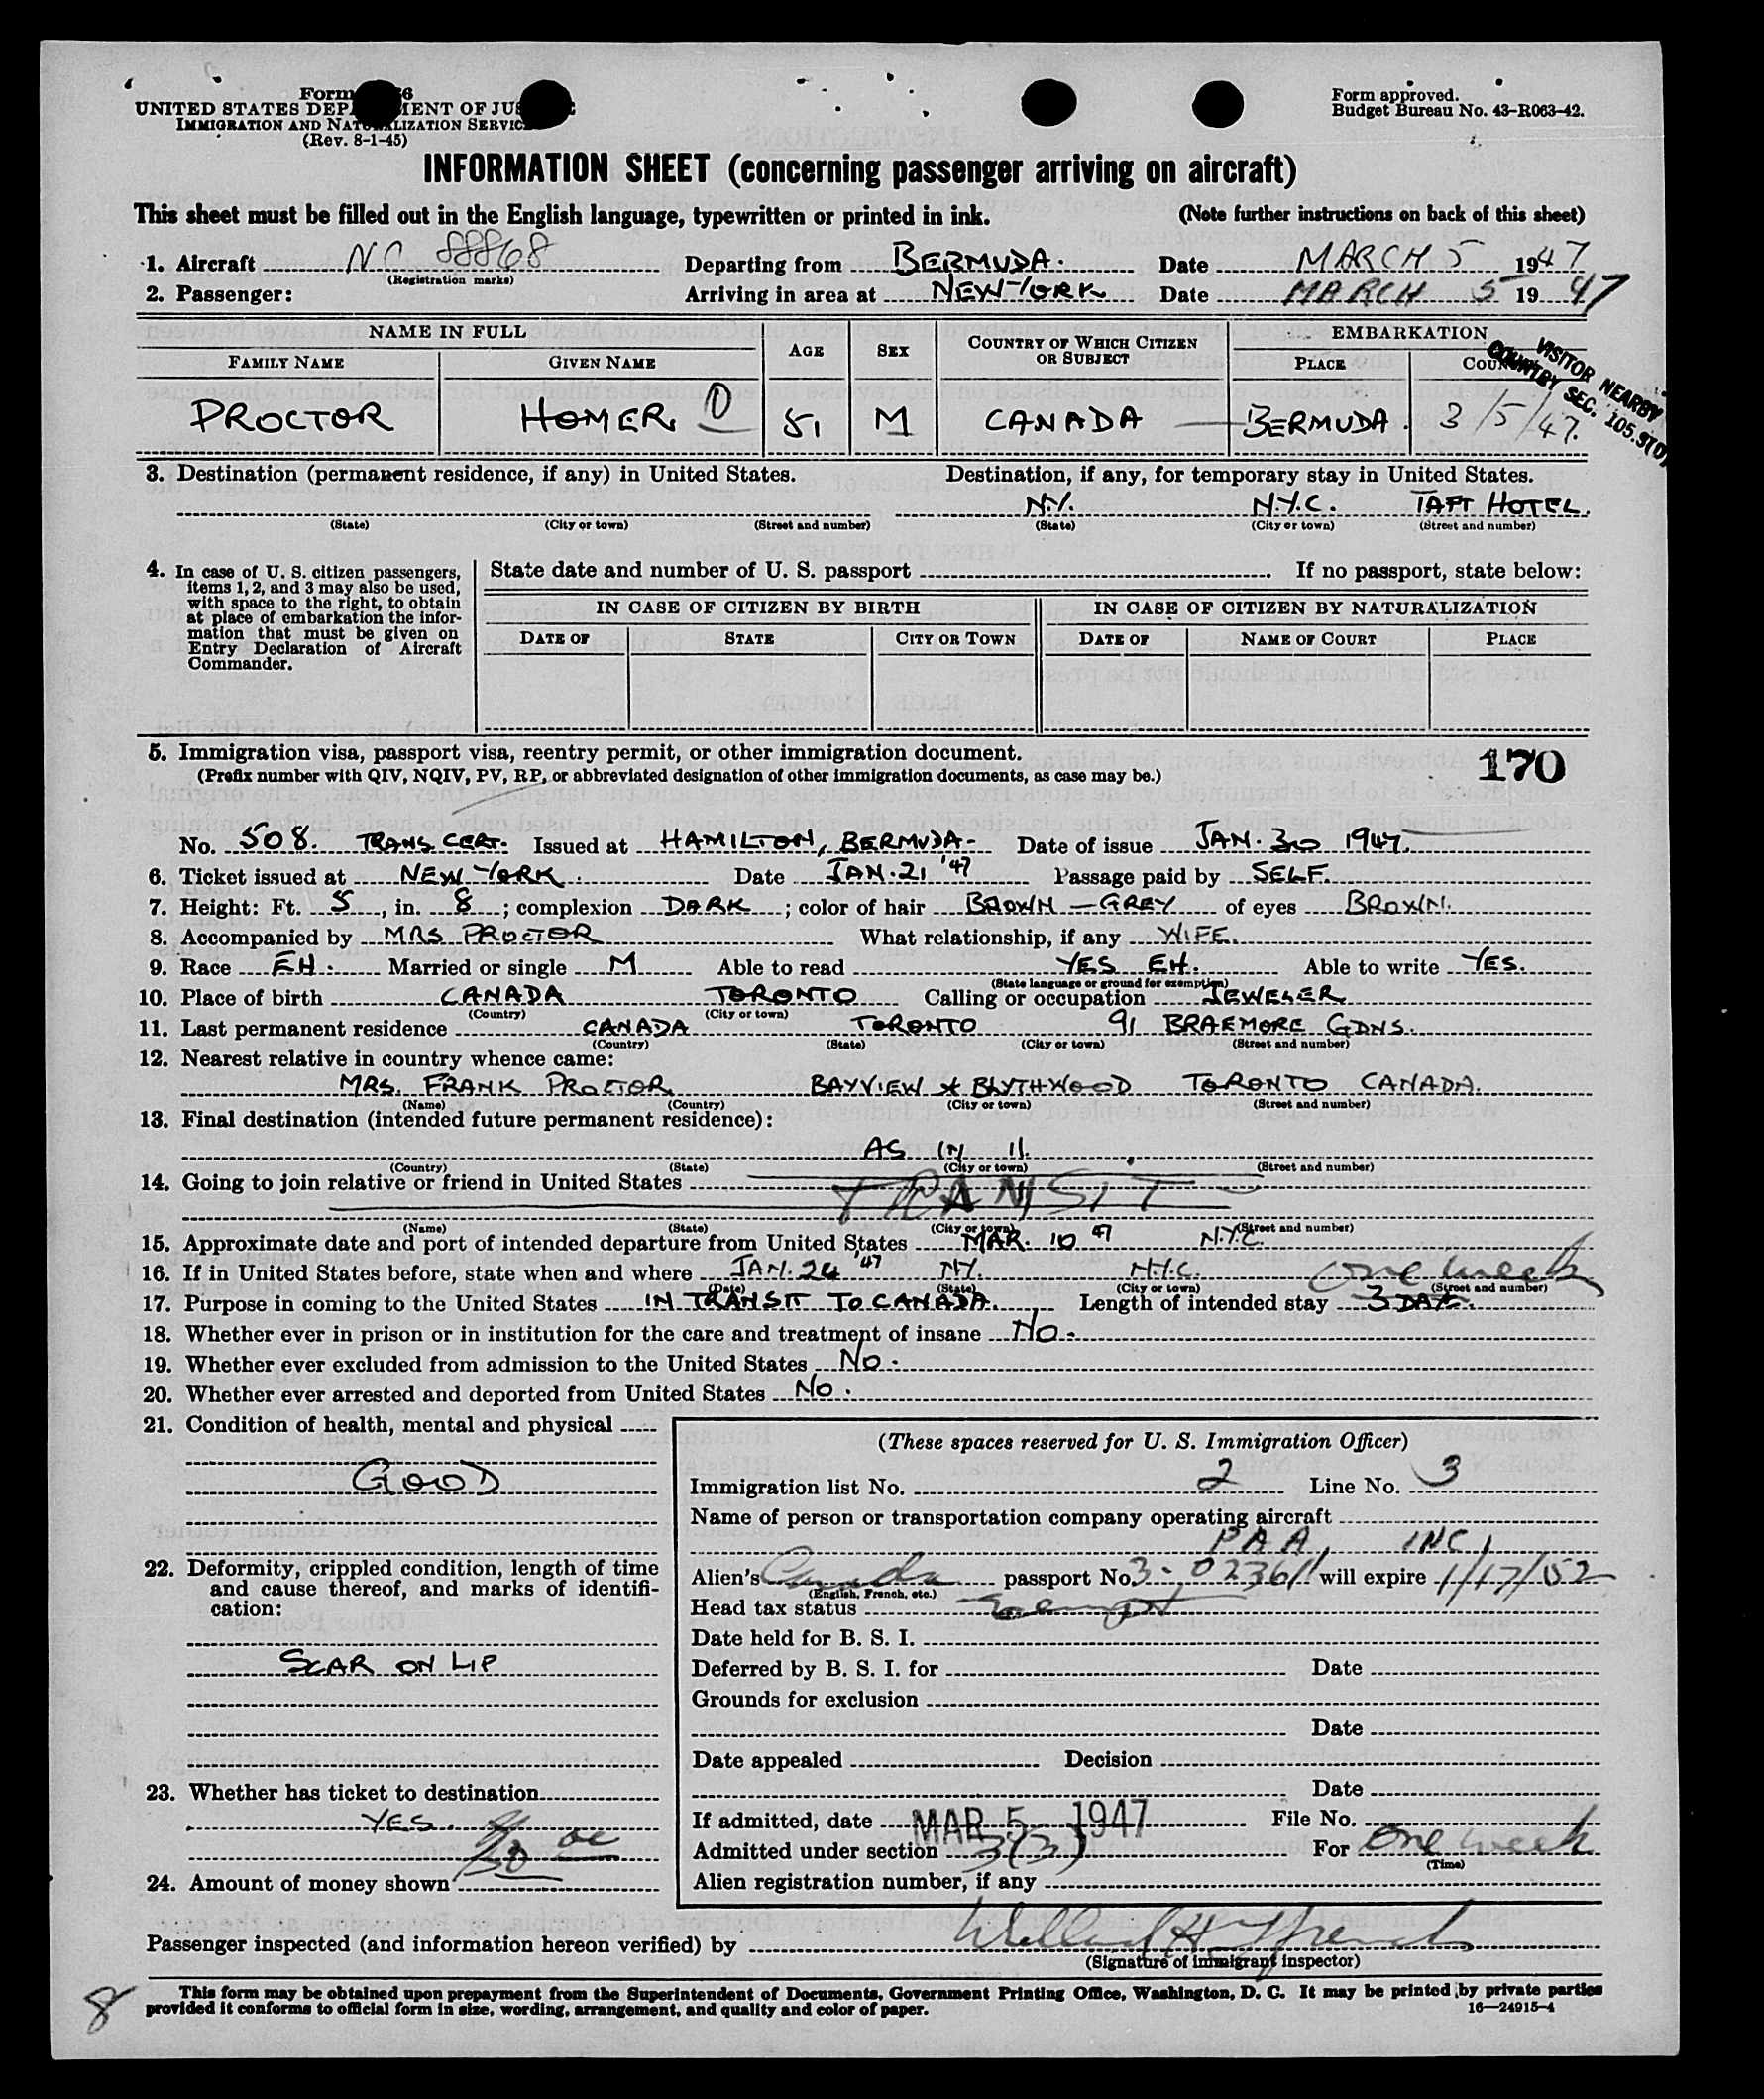 Form 6
UNITED STATES DEP MENT OF JUS
IMMIGRATION AND NATURALIZATION SERVIC
(Rev. 8-1-45)
Form approved.
Budget Bureau No. 43-R063-42.
INFORMATION SHEET (concerning passenger arriving on aircraft)
This sheet must be filled out in the English language, typewritten or printed in ink. (Note further instructions on back of this sheet)
1. Aircraft NC 88868 Departing from BERMUDA. Date MARCH 5 1947
(Registration marks)
2. Passenger: Arriving in area at NEW YORK Date MARCH 5 1947
NAME IN FULL AGE SEX COUNTRY OF WHICH CITIZEN OR SUBJECT EMBARKATION
FAMILY NAME GIVEN NAME PLACE COUNTRY
VISITOR NEARBY
COUNTRY SEC. 105.3(D)
PROCTOR HOMER D 51 M CANADA BERMUDA. 3/5/47.
3. Destination (permanent residence, if any) in United States. Destination, if any, for temporary stay in United States.
N.Y. N.Y.C. TAFT HOTEL.
(State) (City or town) (Street and number) (State) (City or town) (Street and number)
4. In case of U. S. citizen passengers, items 1, 2, and 3 may also be used, with space to the right, to obtain at place of embarkation the information that must be given on Entry Declaration of Aircraft Commander.
State date and number of U. S. passport If no passport, state below:
IN CASE OF CITIZEN BY BIRTH IN CASE OF CITIZEN BY NATURALIZATION
DATE OF STATE CITY OR TOWN DATE OF NAME OF COURT PLACE
5. Immigration visa, passport visa, reentry permit, or other immigration document.
(Prefix number with QIV, NQIV, PV, RP, or abbreviated designation of other immigration documents, as case may be.)
170
No. 508. TRANS. CERT. Issued at HAMILTON, BERMUDA- Date of issue JAN. 30 1947.
6. Ticket issued at NEW YORK. Date JAN. 21 '47 Passage paid by SELF.
7. Height: Ft. 5, in. 8; complexion DARK; color of hair BROWN - GREY of eyes BROWN.
8. Accompanied by MRS PROCTOR What relationship, if any WIFE.
9. Race EH. Married or single M Able to read YES EH. Able to write YES.
(State language or ground for exemption)
10. Place of birth CANADA TORONTO Calling or occupation JEWELER
(Country) (City or town)
11. Last permanent residence CANADA TORONTO 91 BRAEMORE GDNS.
(Country) (State) (City or town) (Street and number)
12. Nearest relative in country whence came:
MRS. FRANK PROCTOR BAYVIEW & BLYTHWOOD TORONTO CANADA.
(Name) (Country) (City or town) (Street and number)
13. Final destination (intended future permanent residence):
AS IN 11.
(Country) (State) (City or town) (Street and number)
14. Going to join relative or friend in United States
TRANSIT
(Name) (State) (City or town) (Street and number)
15. Approximate date and port of intended departure from United States MAR. 10 47 N.Y.C.
16. If in United States before, state when and where JAN. 24 '47 NY. N.Y.C. one week
(Date) (State) (City or town) (Street and number)
17. Purpose in coming to the United States IN TRANSIT TO CANADA. Length of intended stay 3 DAY.
18. Whether ever in prison or in institution for the care and treatment of insane NO-
19. Whether ever excluded from admission to the United States NO.
20. Whether ever arrested and deported from United States NO.
21. Condition of health, mental and physical
GOOD
22. Deformity, crippled condition, length of time and cause thereof, and marks of identification:
SCAR ON LIP
23. Whether has ticket to destination
YES.
24. Amount of money shown
(These spaces reserved for U. S. Immigration Officer)
Immigration list No. 2 Line No. 3
Name of person or transportation company operating aircraft
PAA, INC,
Alien's Canada passport No. 3-023611 will expire 1/17/52
(English, French, etc.)
Head tax status Exempt
Date held for B. S. I.
Deferred by B. S. I. for Date
Grounds for exclusion
Date
Date appealed Decision
Date
If admitted, date MAR 5 1947 File No.
Admitted under section 3(3) For One week
(Time)
Alien registration number, if any
Passenger inspected (and information hereon verified) by
(Signature of immigrant inspector)
8
This form may be obtained upon prepayment from the Superintendent of Documents, Government Printing Office, Washington, D. C. It may be printed by private parties
provided it conforms to official form in size, wording, arrangement, and quality and color of paper. 16—24915-4